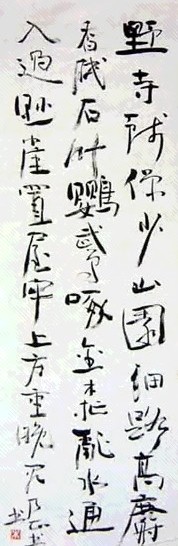 野寺殘僧少山園細路高麝
香眠石竹鸚鵡啄金桃亂水通
人過懸崖置屋牢上方重晚